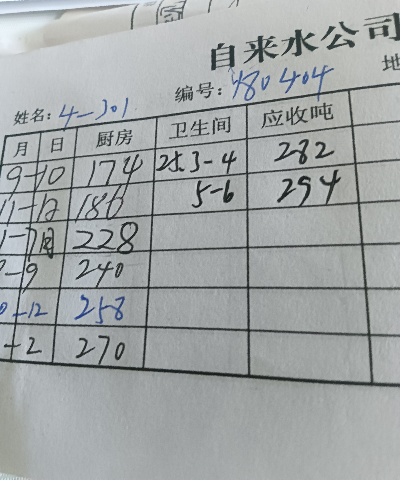 自来水公司
编号: 480404 地
姓名: 4-301
月 日 厨房 卫生间 应收吨
9-10 174 25.3-4 282
11-12 186 5-6 294
1-7月 228
-9 240
0-12 258
-2 270